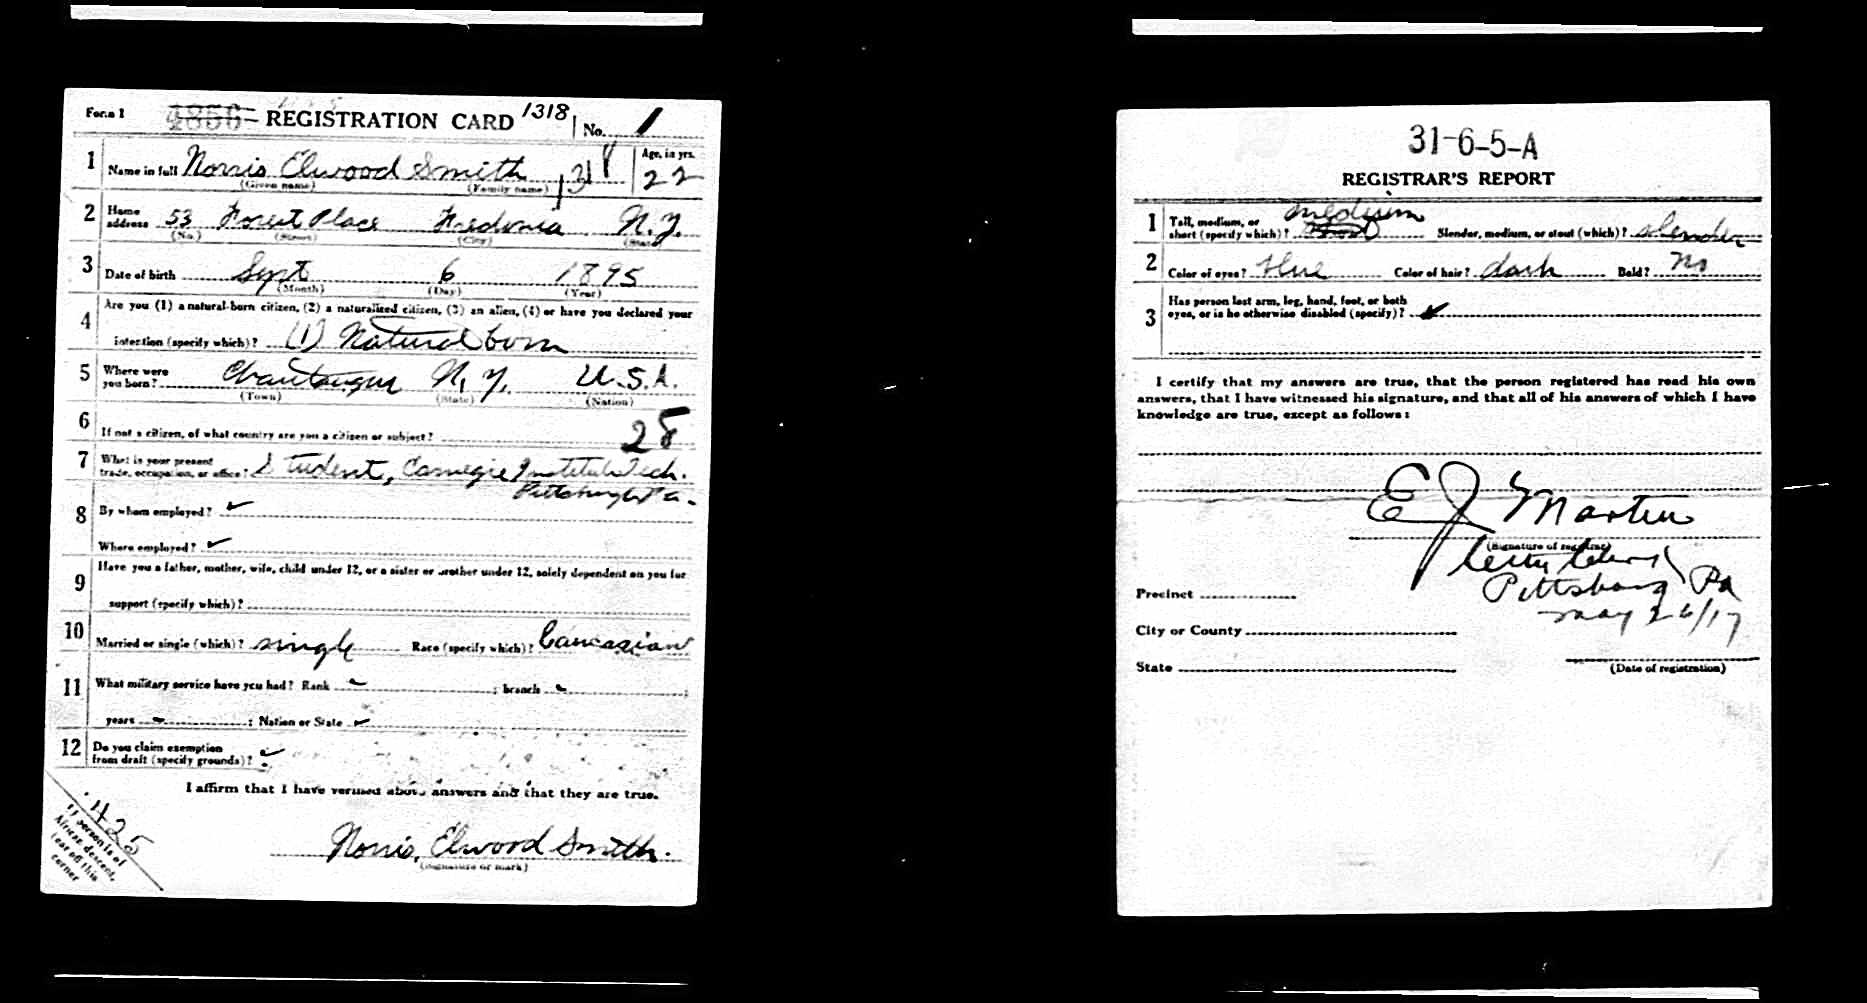 Form 1 4856 REGISTRATION CARD 1318 No. 1
1 Name in full Norris Elwood Smith 318 Age, in yrs. 22
(Given name) (Family name)
2 Home address 53 Forest Place Fredonia N.Y.
(No.) (Street) (City) (State)
3 Date of birth Sept 6 1895
(Month) (Day) (Year)
4 Are you (1) a natural-born citizen, (2) a naturalized citizen, (3) an alien, (4) or have you declared your
intention (specify which)? (1) Natural born
5 Where were you born? Chautauqua N.Y. U.S.A.
(Town) (State) (Nation)
6 If not a citizen, of what country are you a citizen or subject? 28
7 What is your present trade, occupation, or office? Student, Carnegie Institute Tech.
Pittsburgh Pa.
8 By whom employed?
Where employed?
9 Have you a father, mother, wife, child under 12, or a sister or brother under 12, solely dependent on you for
support (specify which)?
10 Married or single (which)? single Race (specify which)? Caucasian
11 What military service have you had? Rank ; branch ;
years ; Nation or State
12 Do you claim exemption from draft (specify grounds)?
I affirm that I have verified above answers and that they are true.
Norris Elwood Smith.
(Signature or mark)
425
If person is of
African descent,
tear off this
corner
31-6-5-A
REGISTRAR'S REPORT
1 Tall, medium, or short (specify which)? medium Slender, medium, or stout (which)? slender
2 Color of eyes? blue Color of hair? dark Bald? No
3 Has person lost arm, leg, hand, foot, or both
eyes, or is he otherwise disabled (specify)?
I certify that my answers are true, that the person registered has read his own
answers, that I have witnessed his signature, and that all of his answers of which I have
knowledge are true, except as follows:
E J Martin
(Signature of registrar)
City Clerk
Precinct Pittsburg Pa
May 26/17
City or County
State (Date of registration)